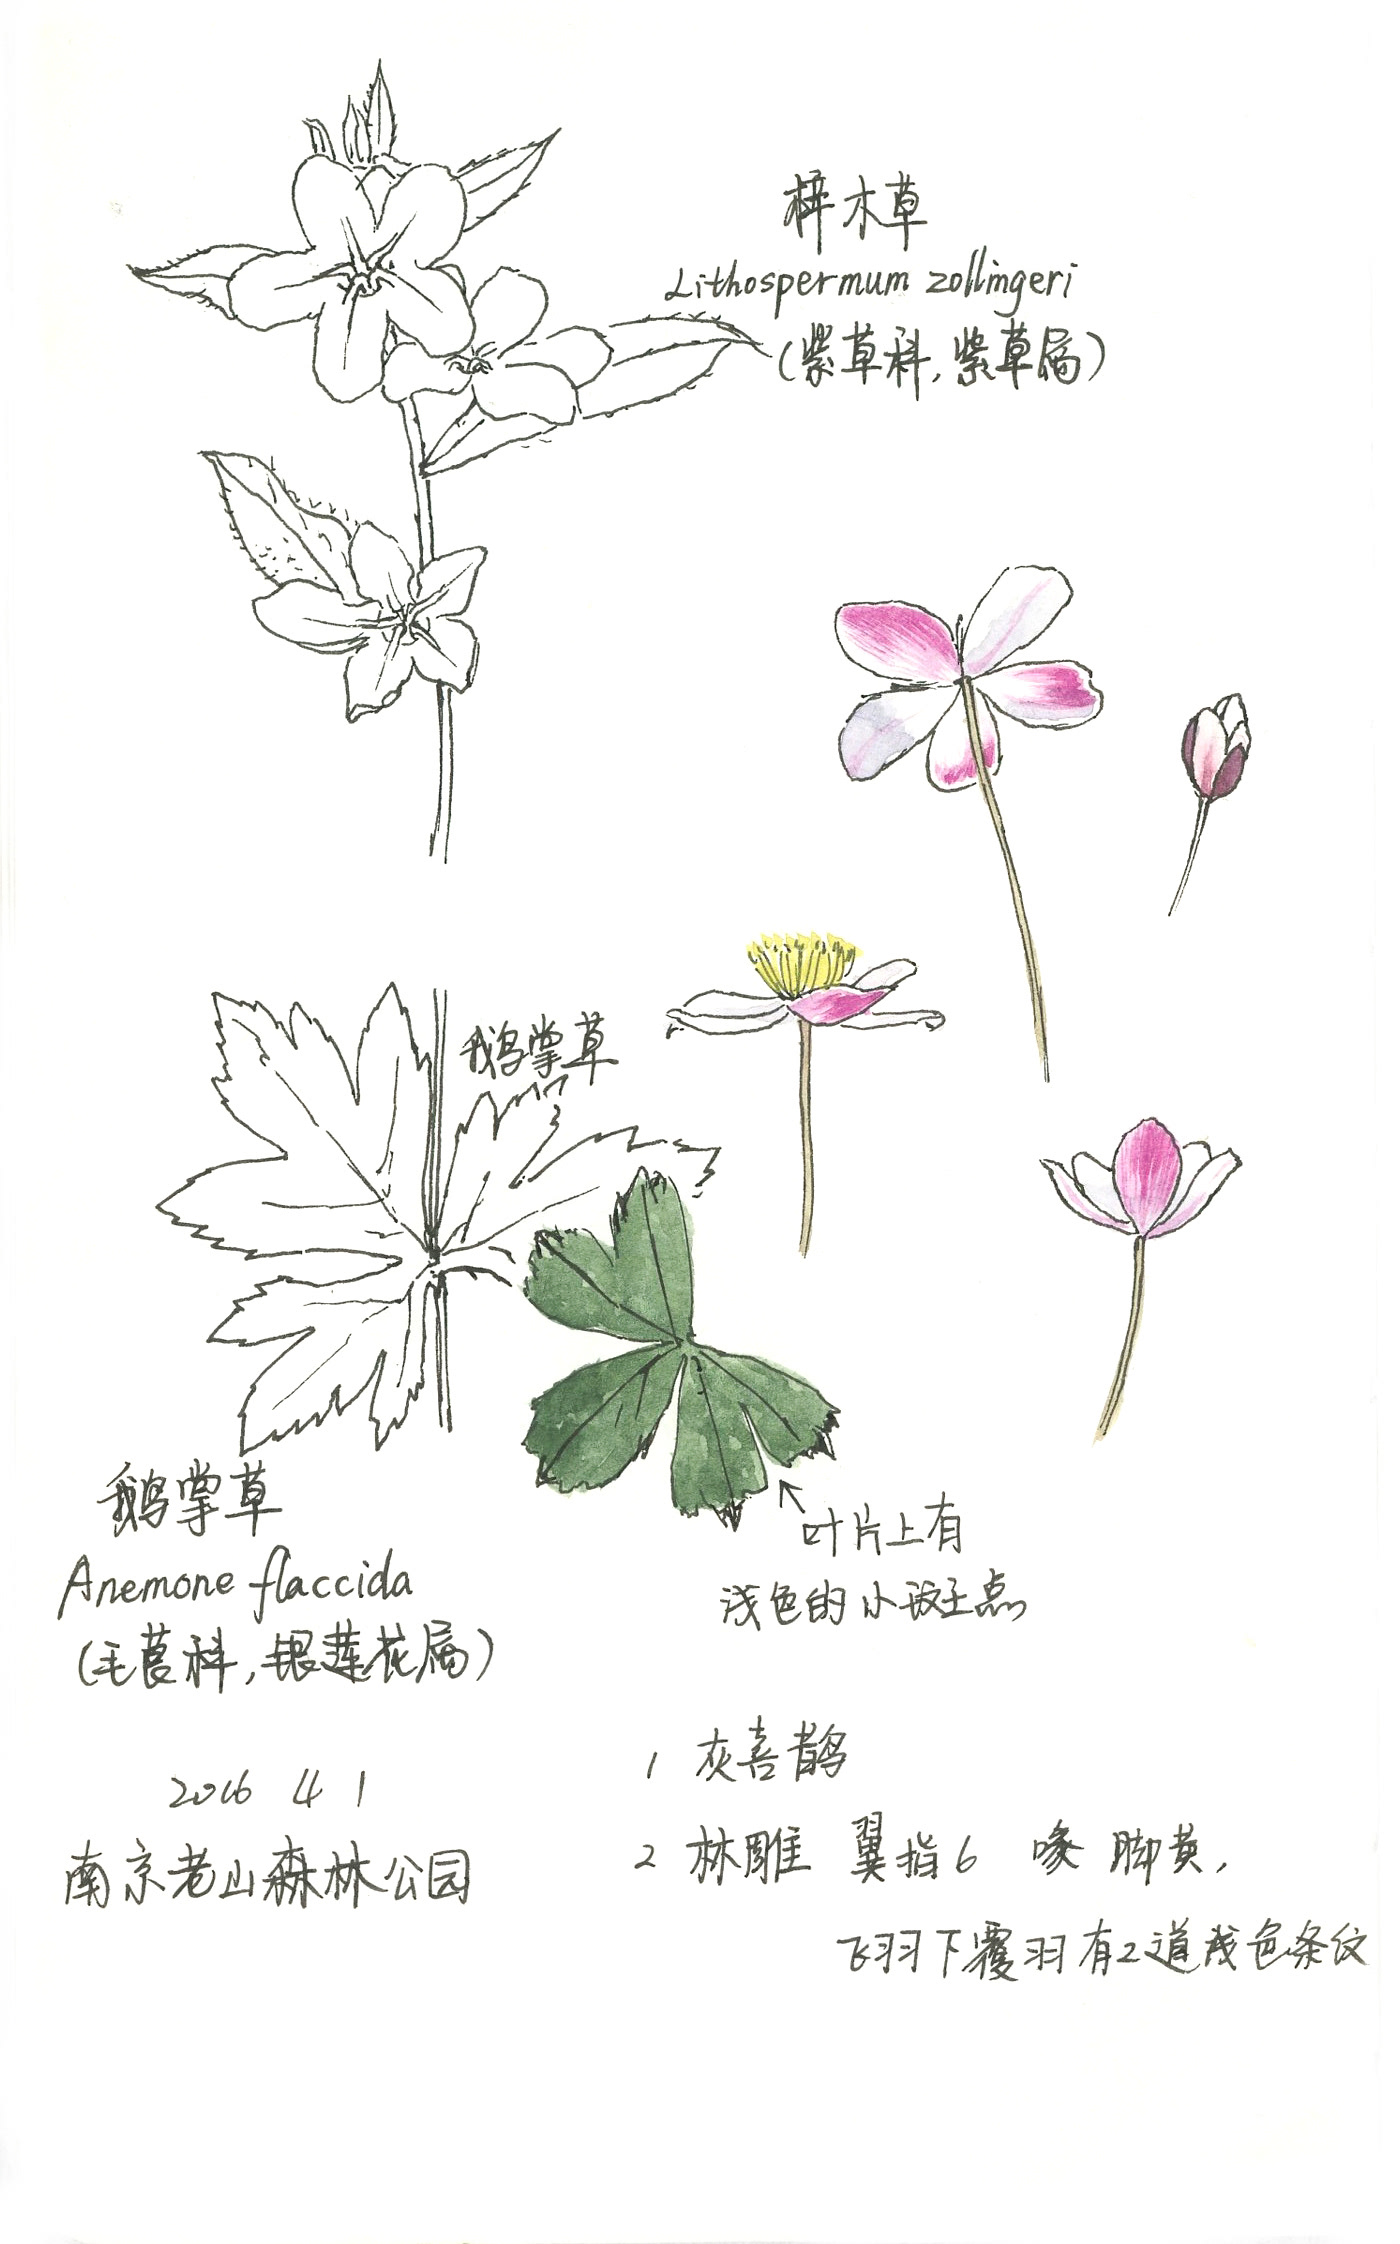 梓木草
Lithospermum zollingeri
(紫草科,紫草属)
鹅掌草
叶片上有
浅色的小斑点
鹅掌草
Anemone flaccida
(毛茛科,银莲花属)
2016 4 1
南京老山森林公园
1 灰喜鹊
2 林雕 翼指6 喙 脚黄,
飞羽下覆羽有2道浅色条纹